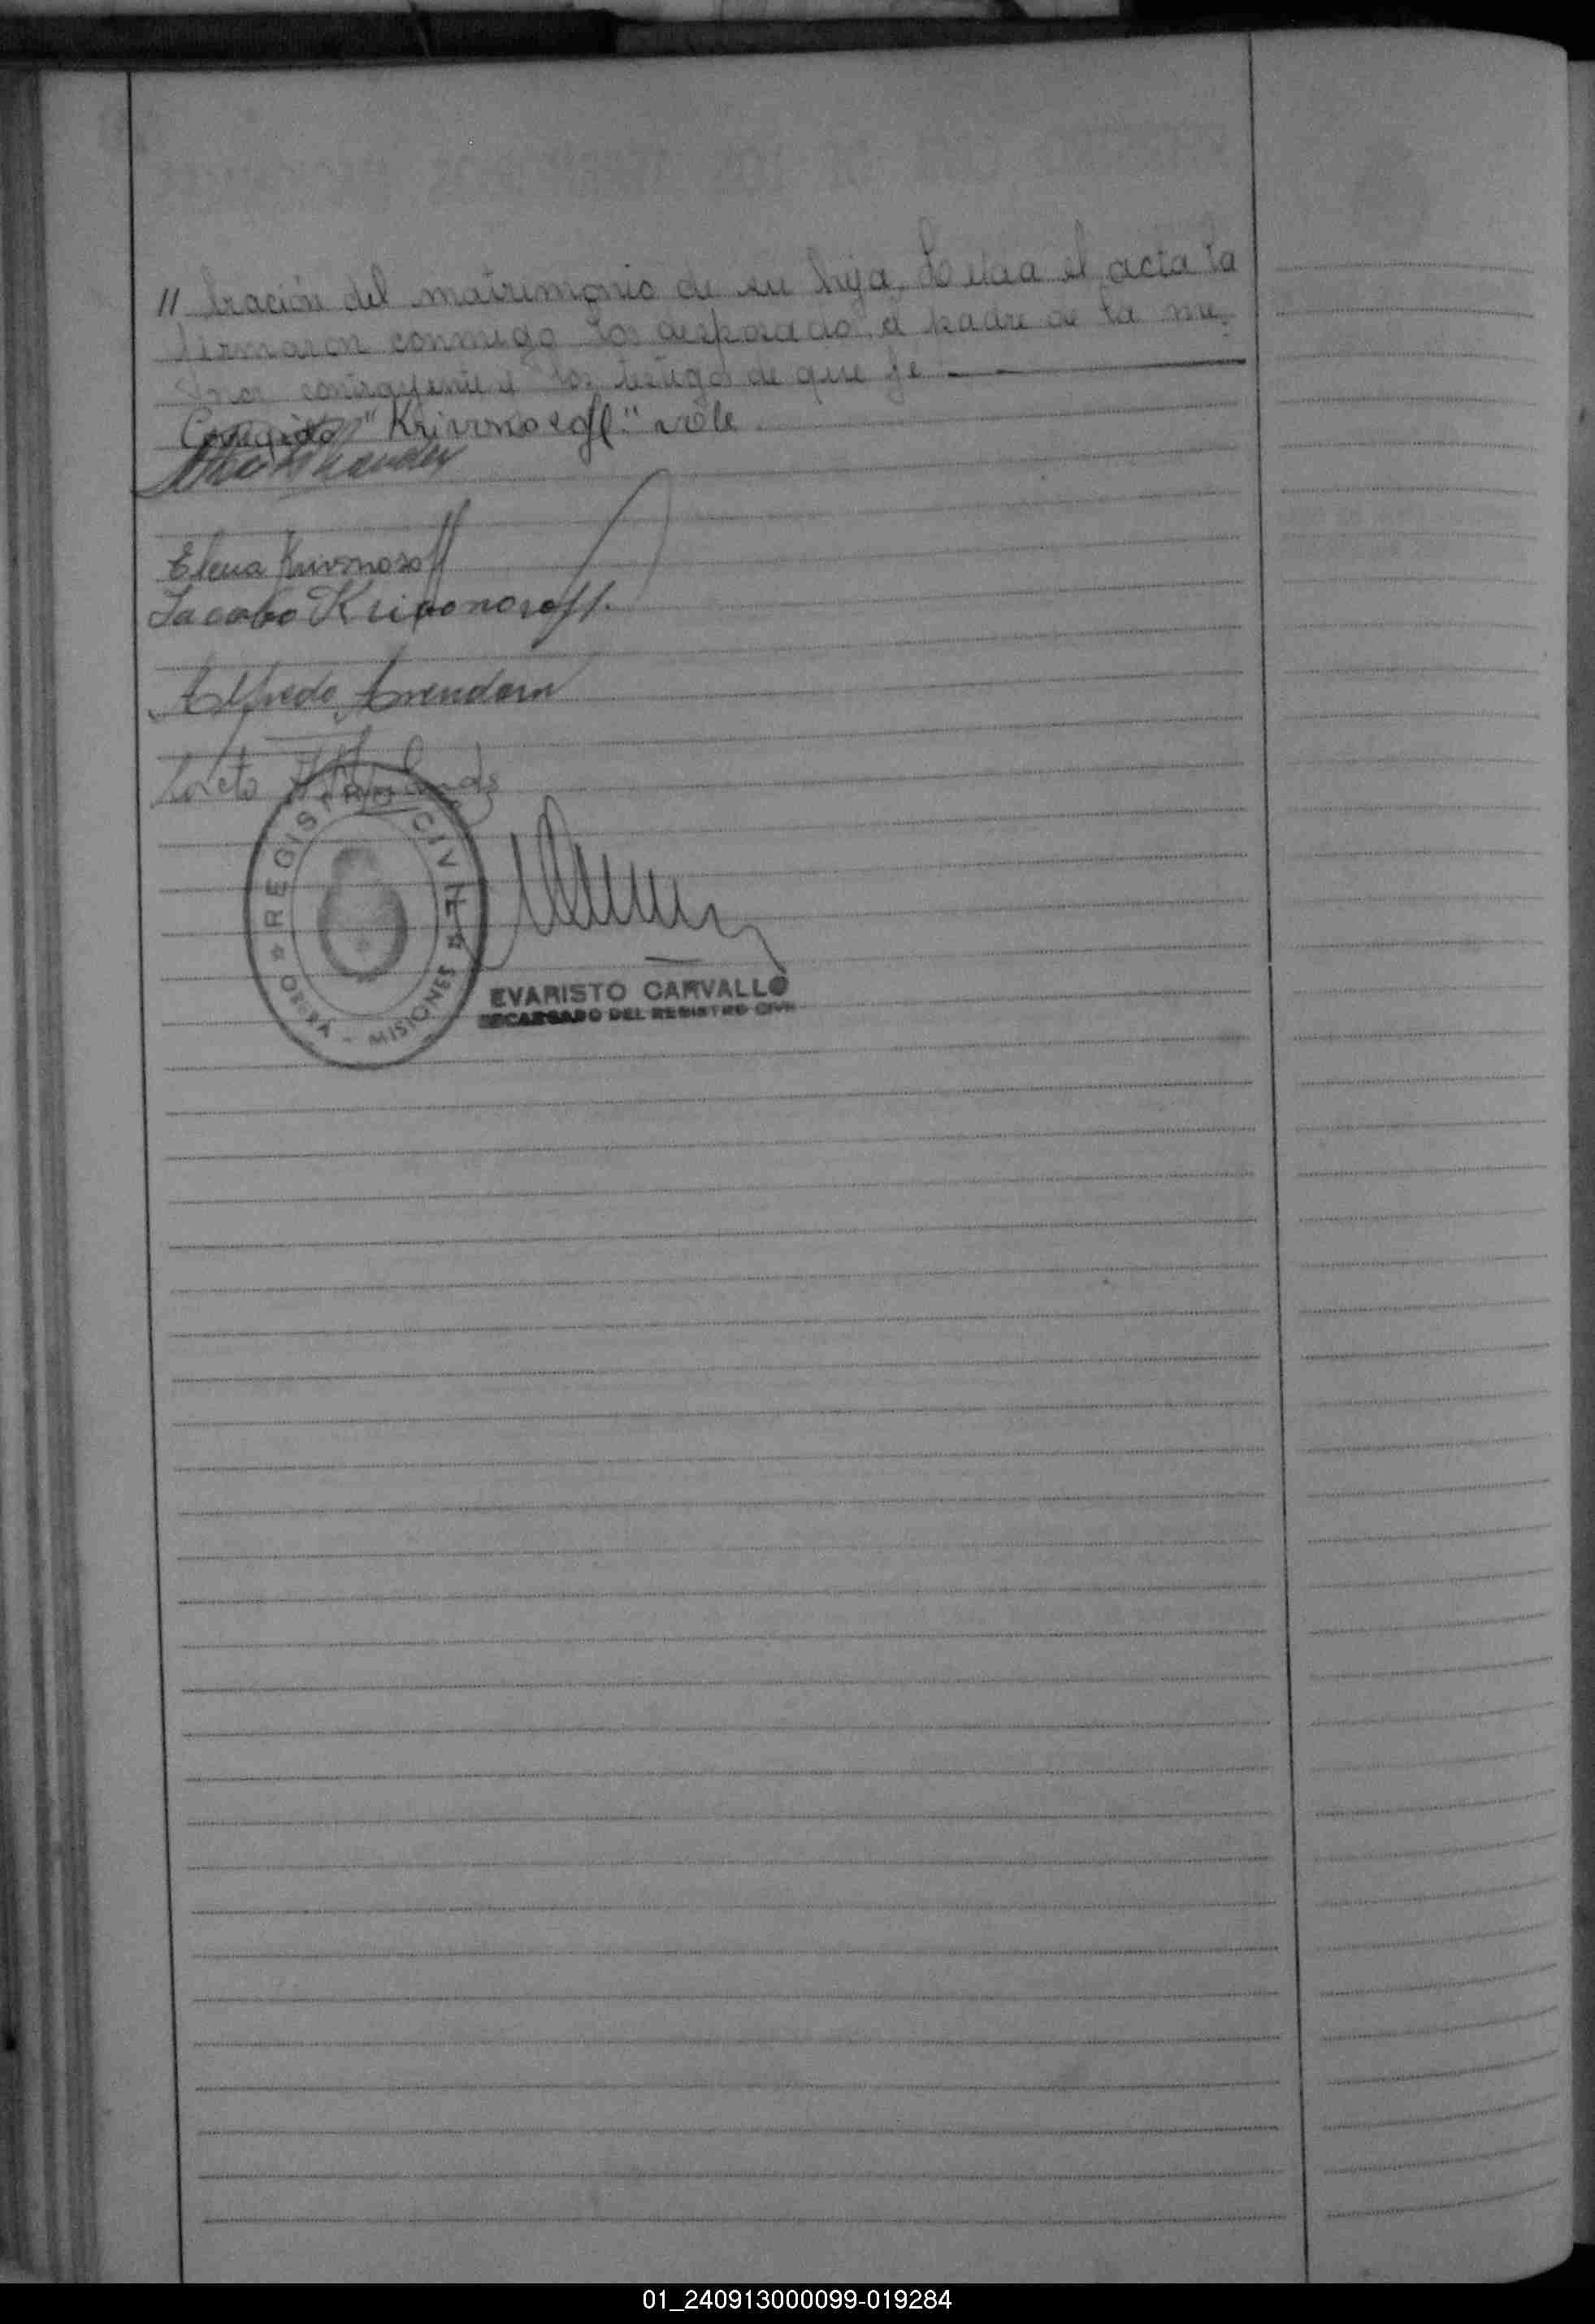 // bración del matrimonio de su hija. Leida el acta la
firmaron conmigo los desposados, el padre de la me-
nor contrayente y los testigos de que doy fe
Corregido "Krivonosoff": vale
Elena Krivonosoff
Jacobo Krivonosoff.
Alfredo
Loreto
REGISTRO CIVIL
OBERA - MISIONES
EVARISTO CARVALLO
ENCARGADO DEL REGISTRO CIVIL
01_240913000099-019284